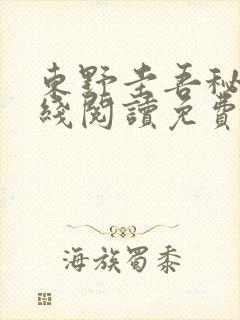 東野圭吾秘
綫閱讀免費
海族蜀黍